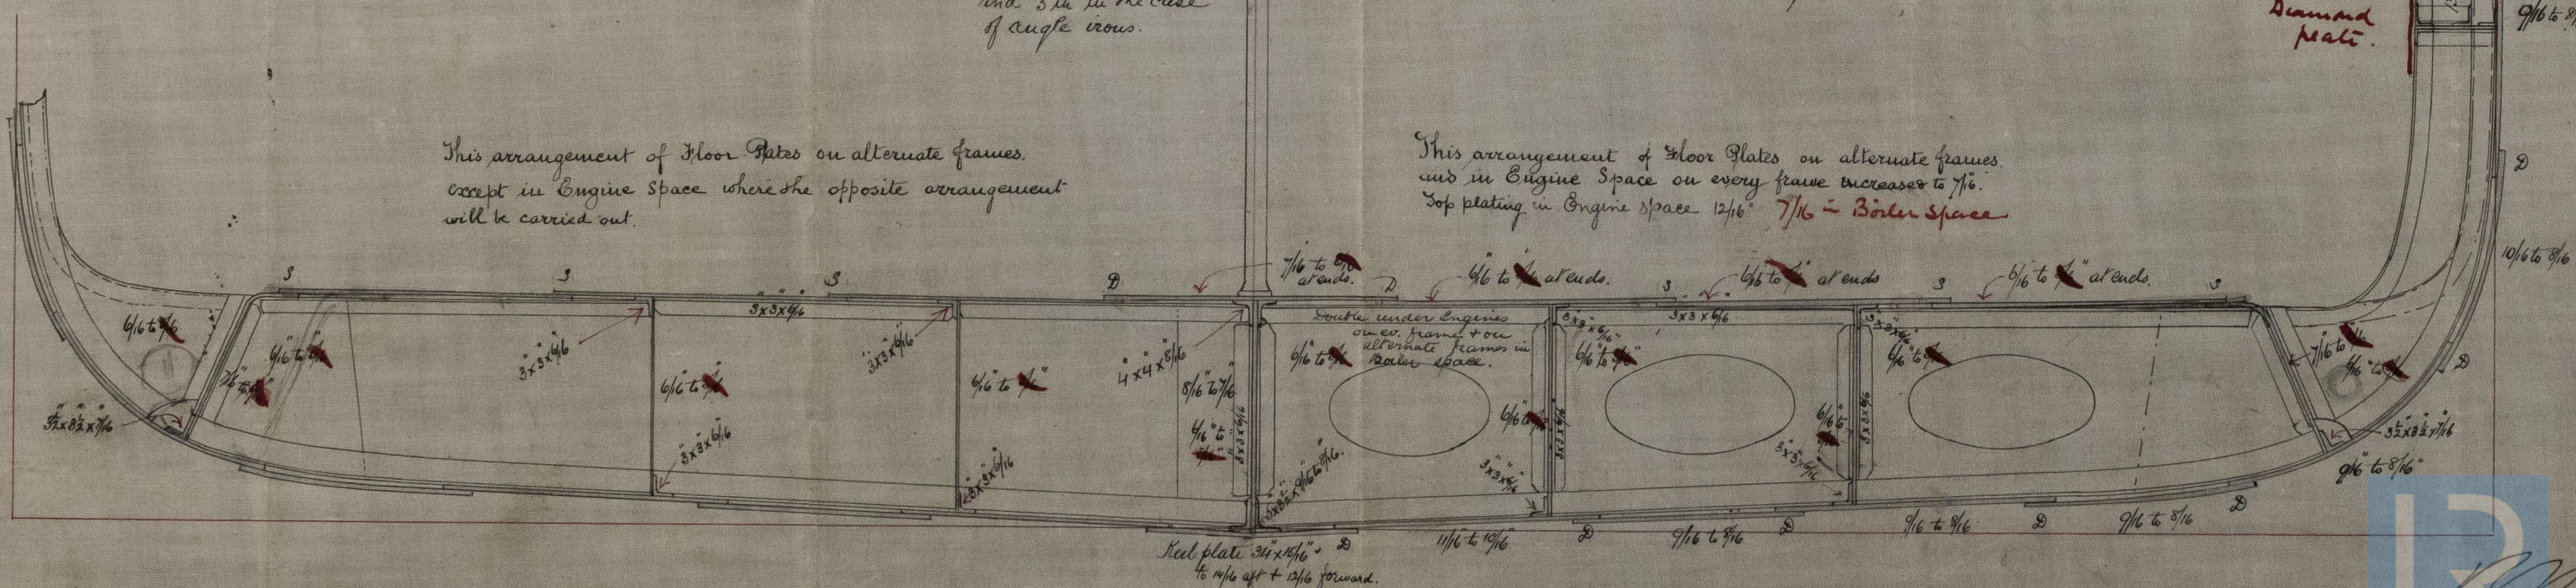 of angle irons.
Diamond
plate.
This arrangement of Floor Plates on alternate frames.
except in Engine Space where the opposite arrangement
will be carried out.
This arrangement of Floor Plates on alternate frames.
and in Engine Space on every frame increased to 7/16".
Top plating in Engine space 12/16" 7/16 in Boiler Space
D
10/16 to 8/16
S
S
S
D
7/16 to
at ends.
D
6/16" to at ends.
S
6/16 to at ends
S
6/16 to at ends.
S
3"x3"x6/16
3"x3"x6/16
Double under Engines
on ev. frame + on
alternate frames in
Boiler space.
6/16 to
6/16" to
7/16"
3"x3"x6/16
3"x3"x6/16
4"x4"x8/16
6/16" to
3"x3"x6/16
6/16" to
3"x3"x6/16
6/16" to
7/16" to
6/16" to
6/16" to
6/16" to
8/16" to 7/16"
6/16" to
3x3x6/16
6/16" to
3x3x6/16
6/16" to
3x3x6/16
D
3½"x3½"x7/16
3"x3"x6/16
3"x3"x6/16
3"x3"x6/16
3"x3"x6/16
3½"x3½"x7/16
9/16" to 8/16"
Keel plate 34"x16/16"
to 14/16 aft + 12/16 forward.
D
11/16" to 10/16"
D
9/16 to 8/16
D
9/16 to 8/16
D
9/16 to 8/16
D